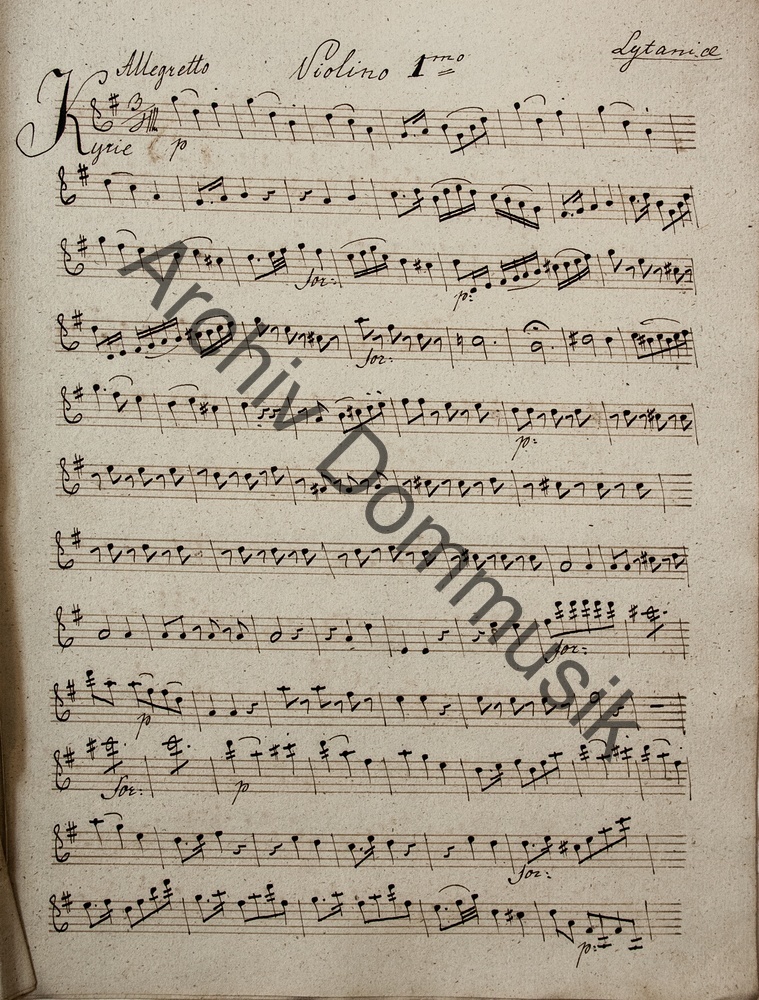 Allegretto Violino 1mo Lytaniæ
Kyrie p
for:
p:
for:
p:
for:
p
for: p
for:
p:
Archiv Dommusik